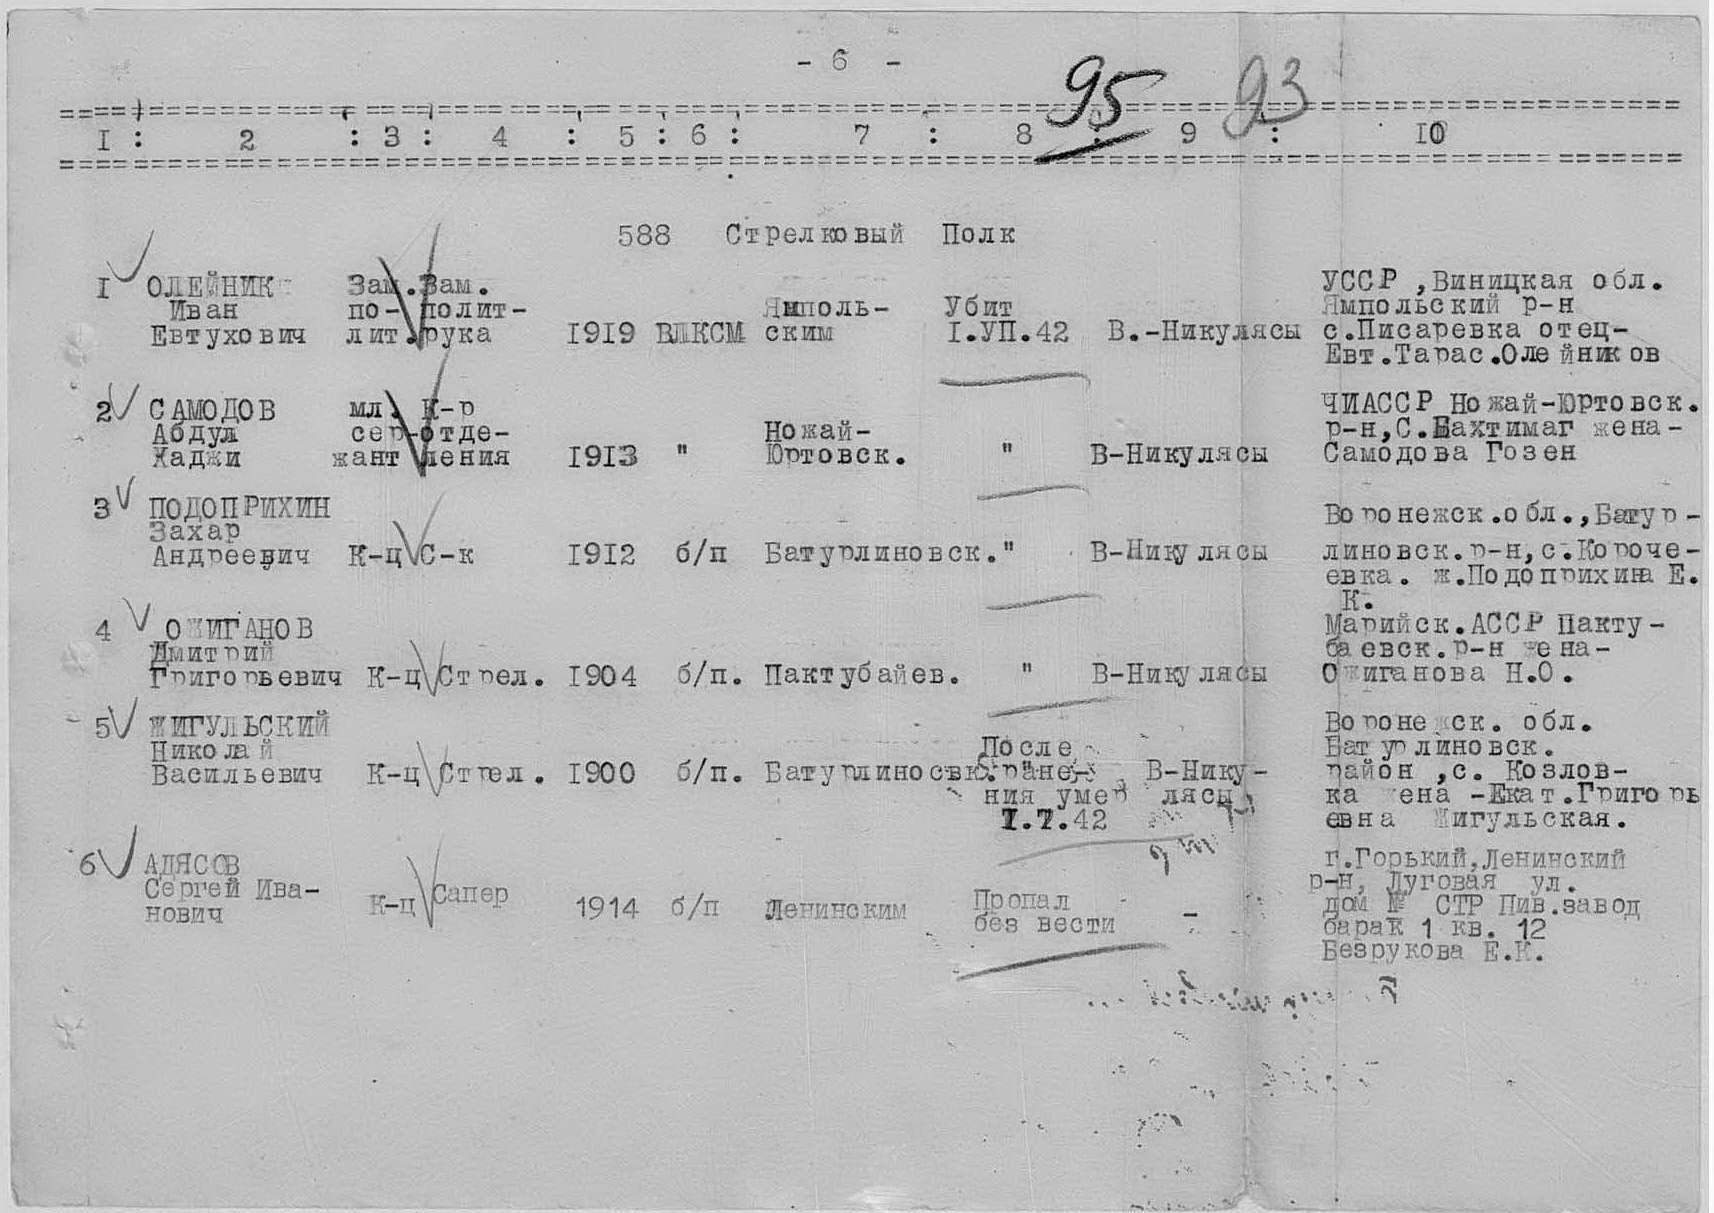 - 6 -
95 93
I : 2 : 3 : 4 : 5 : 6 : 7 : 8 : 9 : 10
588 Стрелковый Полк
I ОЛЕЙНИК Зам. Зам. УССР ,Виницкая обл.
Иван по- полит- Ямполь- Убит Ямпольский р-н
Евтухович лит. рука 1919 ВЛКСМ ским I.УП.42 В.-Никулясы с.Писаревка отец-
Евт.Тарас.Олейников
2 САМОДОВ мл. К-р ЧИАССР Ножай-Юртовск.
Абдул сер- отде- Ножай- р-н,С.Бахтимаг жена-
Хаджи жант ления 1913 " Юртовск. " В-Никулясы Самодова Гозен
3 ПОДОПРИХИН Воронежск.обл.,Батур-
Захар
Андреевич К-ц С-к 1912 б/п Батурлиновск." В-Никулясы линовск.р-н,с.Короче-
евка. ж.Подоприхина Е.
К.
4 ОЖИГАНОВ Марийск.АССР Пакту-
Дмитрий баевск.р-н жена-
Григорьевич К-ц Стрел. 1904 б/п. Пактубайев. " В-Никулясы Ожиганова Н.О.
5 ЖИГУЛЬСКИЙ Воронежск. обл.
Николай После Батурлиновск.
Васильевич К-ц Стрел. 1900 б/п. Батурлиносвк. ране- В-Нику- район ,с. Козлов-
ния умер лясы ка жена -Екат.Григорь
1.7.42 евна Жигульская.
6 АДЯСОВ г.Горький,Ленинский
Сергей Ива- К-ц Сапер Пропал р-н, Луговая ул.
нович 1914 б/п Ленинским без вести - дом № СТР Пив.завод
барак 1 кв. 12
Безрукова Е.К.